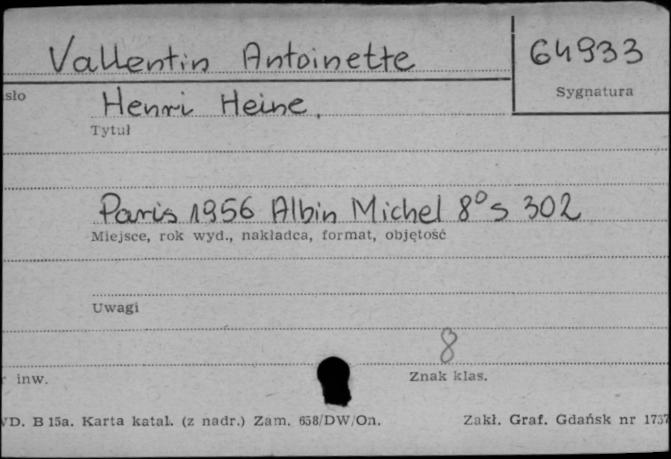 Vallentin Antoinette
64933
Sygnatura
sło
Henri Heine,
Tytuł
Paris 1956 Albin Michel 8° s 302
Miejsce, rok wyd., nakładca, format, objętość
Uwagi
8
r inw.
Znak klas.
WD. B 15a. Karta katal. (z nadr.) Zam. 658/DW/On.
Zakł. Graf. Gdańsk nr 1737